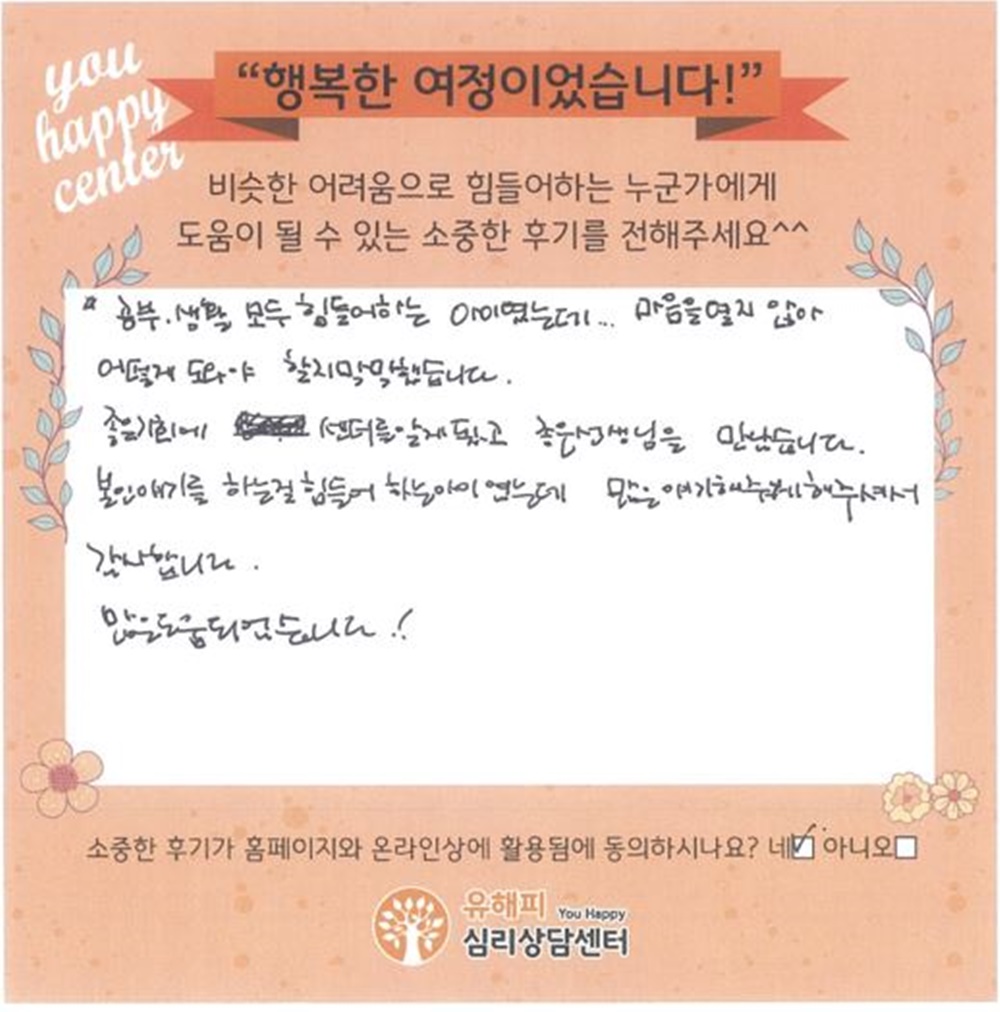 you
happy
center
“행복한 여정이었습니다!”
비슷한 어려움으로 힘들어하는 누군가에게
도움이 될 수 있는 소중한 후기를 전해주세요^^
* 공부.생활 모두 힘들어하는 아이였는데... 마음을열지 않아
어떻게 도와야 할지막막했습니다.
좋은기회에 센터를알게됐고 좋은선생님을 만났습니다.
본인얘기를 하는걸힘들어 하는아이였는데 많은얘기해주게해주셔서
감사합니다.
많은도움되었습니다!!
소중한 후기가 홈페이지와 온라인상에 활용됨에 동의하시나요? 네☑ 아니오☐
유해피 You Happy
심리상담센터